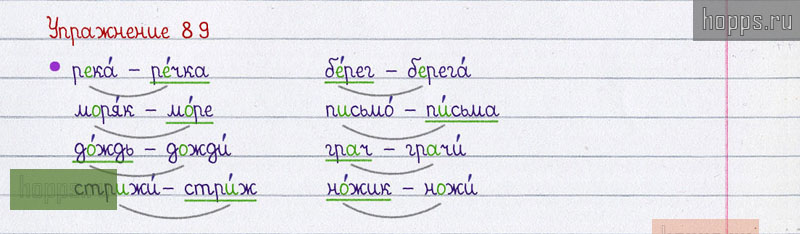 hopps.ru
Упражнение 89
река́ – ре́чка бе́рег – берега́
моря́к – мо́ре письмо́ – пи́сьма
до́ждь – дожди́ грач – грачи́
hopps
стрижи́ – стри́ж но́жик – ножи́